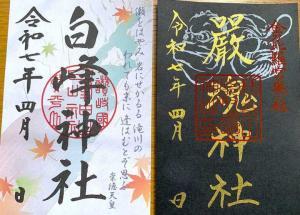 瀬をはやみ 岩にせかるる 滝川の
われても末に 逢はむとぞ思ふ
崇徳天皇
白峰神社
令和七年四月 日
嚴魂神社
令和七年四月 日